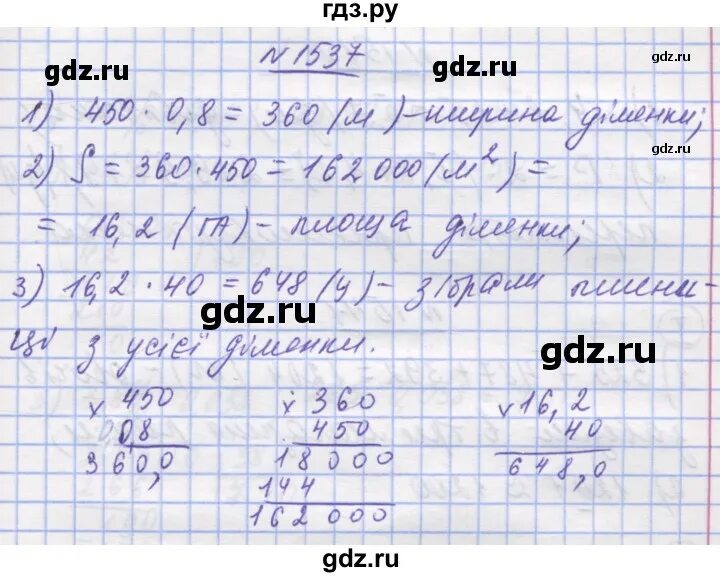 гдз.ру
№ 1537
gdz.ru
gdz.ru
gdz.ru
1) 450 · 0,8 = 360 (м) – ширина ділянки;
2) S = 360 · 450 = 162 000 (м²) =
gdz.ru
= 16,2 (ГА) – площа ділянки;
3) 16,2 · 40 = 648 (ц) – зібрали пшени-
gdz.ru
ці з усієї ділянки.
gdz.ru
× 450
0,8
360,0
× 360
450
18000
144
162 000
× 16,2
40
648,0
gdz.ru
gdz.ru
gdz.ru